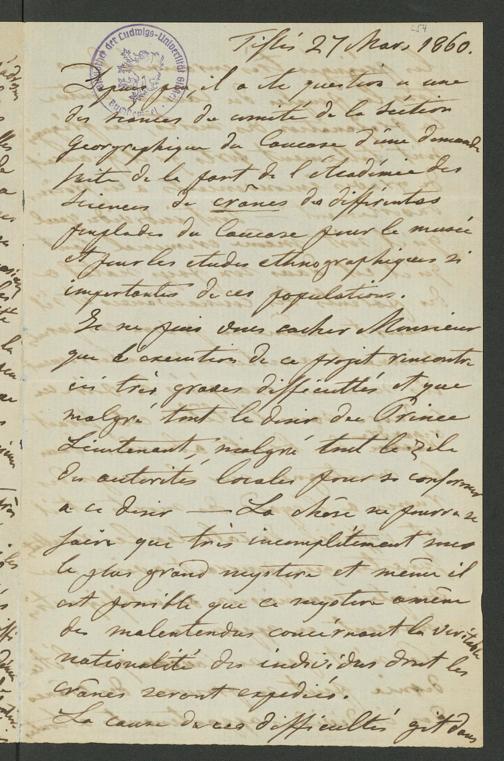 Tiflis 27 Mars 1860.
Depuis peu, il a été question à une
des séances du comité de la Section
Géographique du Caucase d'une demande
faite de la part de l'Académie des
Sciences de crânes des différentes
peuplades du Caucase pour le musée
et pour les études ethnographiques si
importantes de ces populations.
Je ne puis vous cacher Monsieur
que l'execution de ce projet rencontre
ici très graves difficultés et que
malgré tout le désir du Prince
Lieutenant, malgré tout le zèle
des autorités locales pour se conformer
a ce désir — La chose ne pourra se
faire que très incomplètement sous
le plus grand mystère et même il
est possible que ce mystère amène
des malentendus concernant la véritable
nationalité des individus dont les
crânes seront expediés.
La cause de ces difficultés gît dans